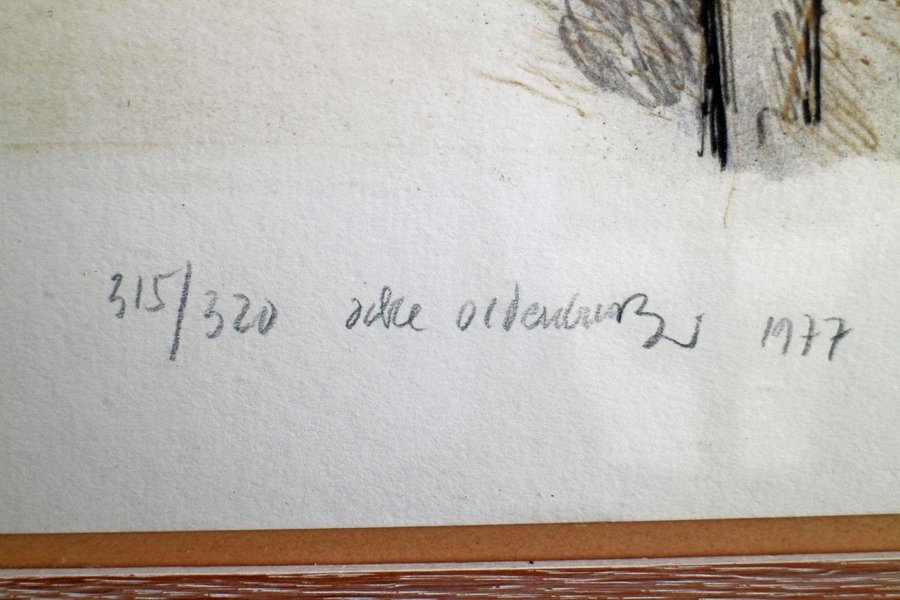 315/320 acke oldenburg 1977